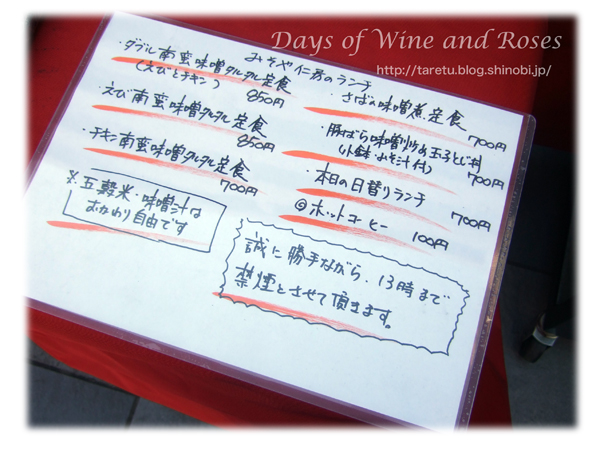 Days of Wine and Roses
http://taretu.blog.shinobi.jp/
みそや仁房のランチ
・ダブル南蛮味噌タルタル定食
(えびとチキン) 850円
・えび南蛮味噌タルタル定食
850円
・チキン南蛮味噌タルタル定食
700円
※五穀米・味噌汁は
おかわり自由です
・さばの味噌煮定食
700円
・豚ばら味噌炒め玉子とじ丼
(小鉢・みそ汁付) 700円
・本日の日替りランチ
700円
◎ホットコーヒー 100円
誠に勝手ながら、13時まで
禁煙とさせて頂きます。